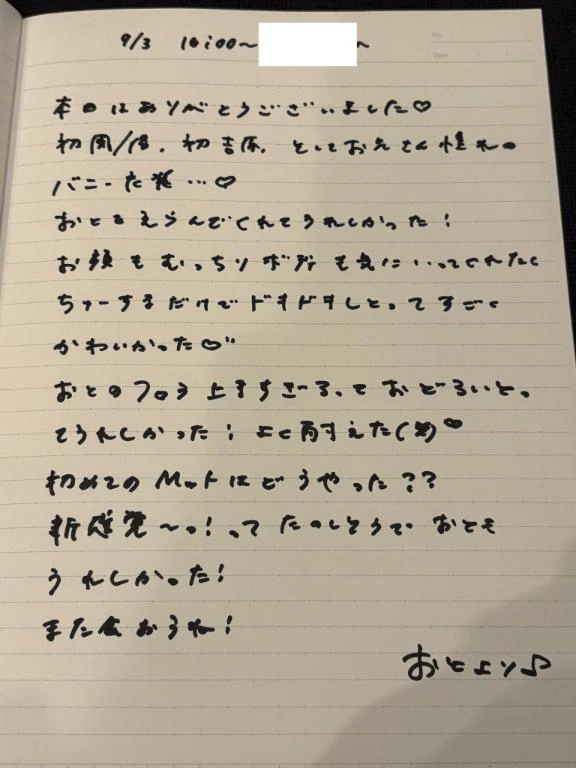 9/3 16:00〜 〜
No.
Date
本日はありがとうございました♡
初風/俗、初吉原、としておえさん憧れの
バニーた発…♡
おとをえらんでくれてうれしかった!
お顔もむっちりボディも気にいってくれたし
ちゅーするだけでドキドキしとってすごく
かわいかった♡
おとのフロう上手すごーる、っておどろいと。
てうれしかった!よく耐えた(笑)♡
初めてのMットはどうやった??
新感覚〜っ!ってたのしそうで おとも
うれしかった!
また会おうね!
おとより♪